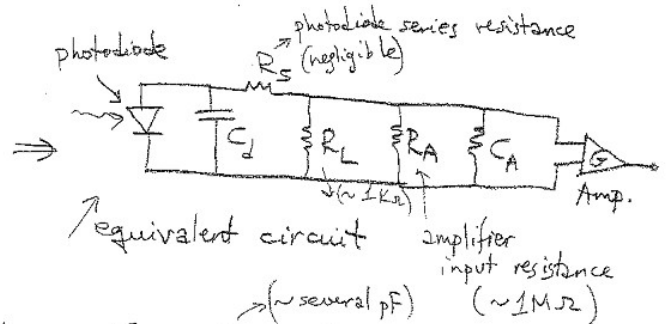 photodiode series resistance
(negligible)
photodiode
R_S
C_d
R_L
R_A
C_A
G
Amp.
(~1KΩ)
equivalent circuit
amplifier
input resistance
(~several pF)
(~1MΩ)